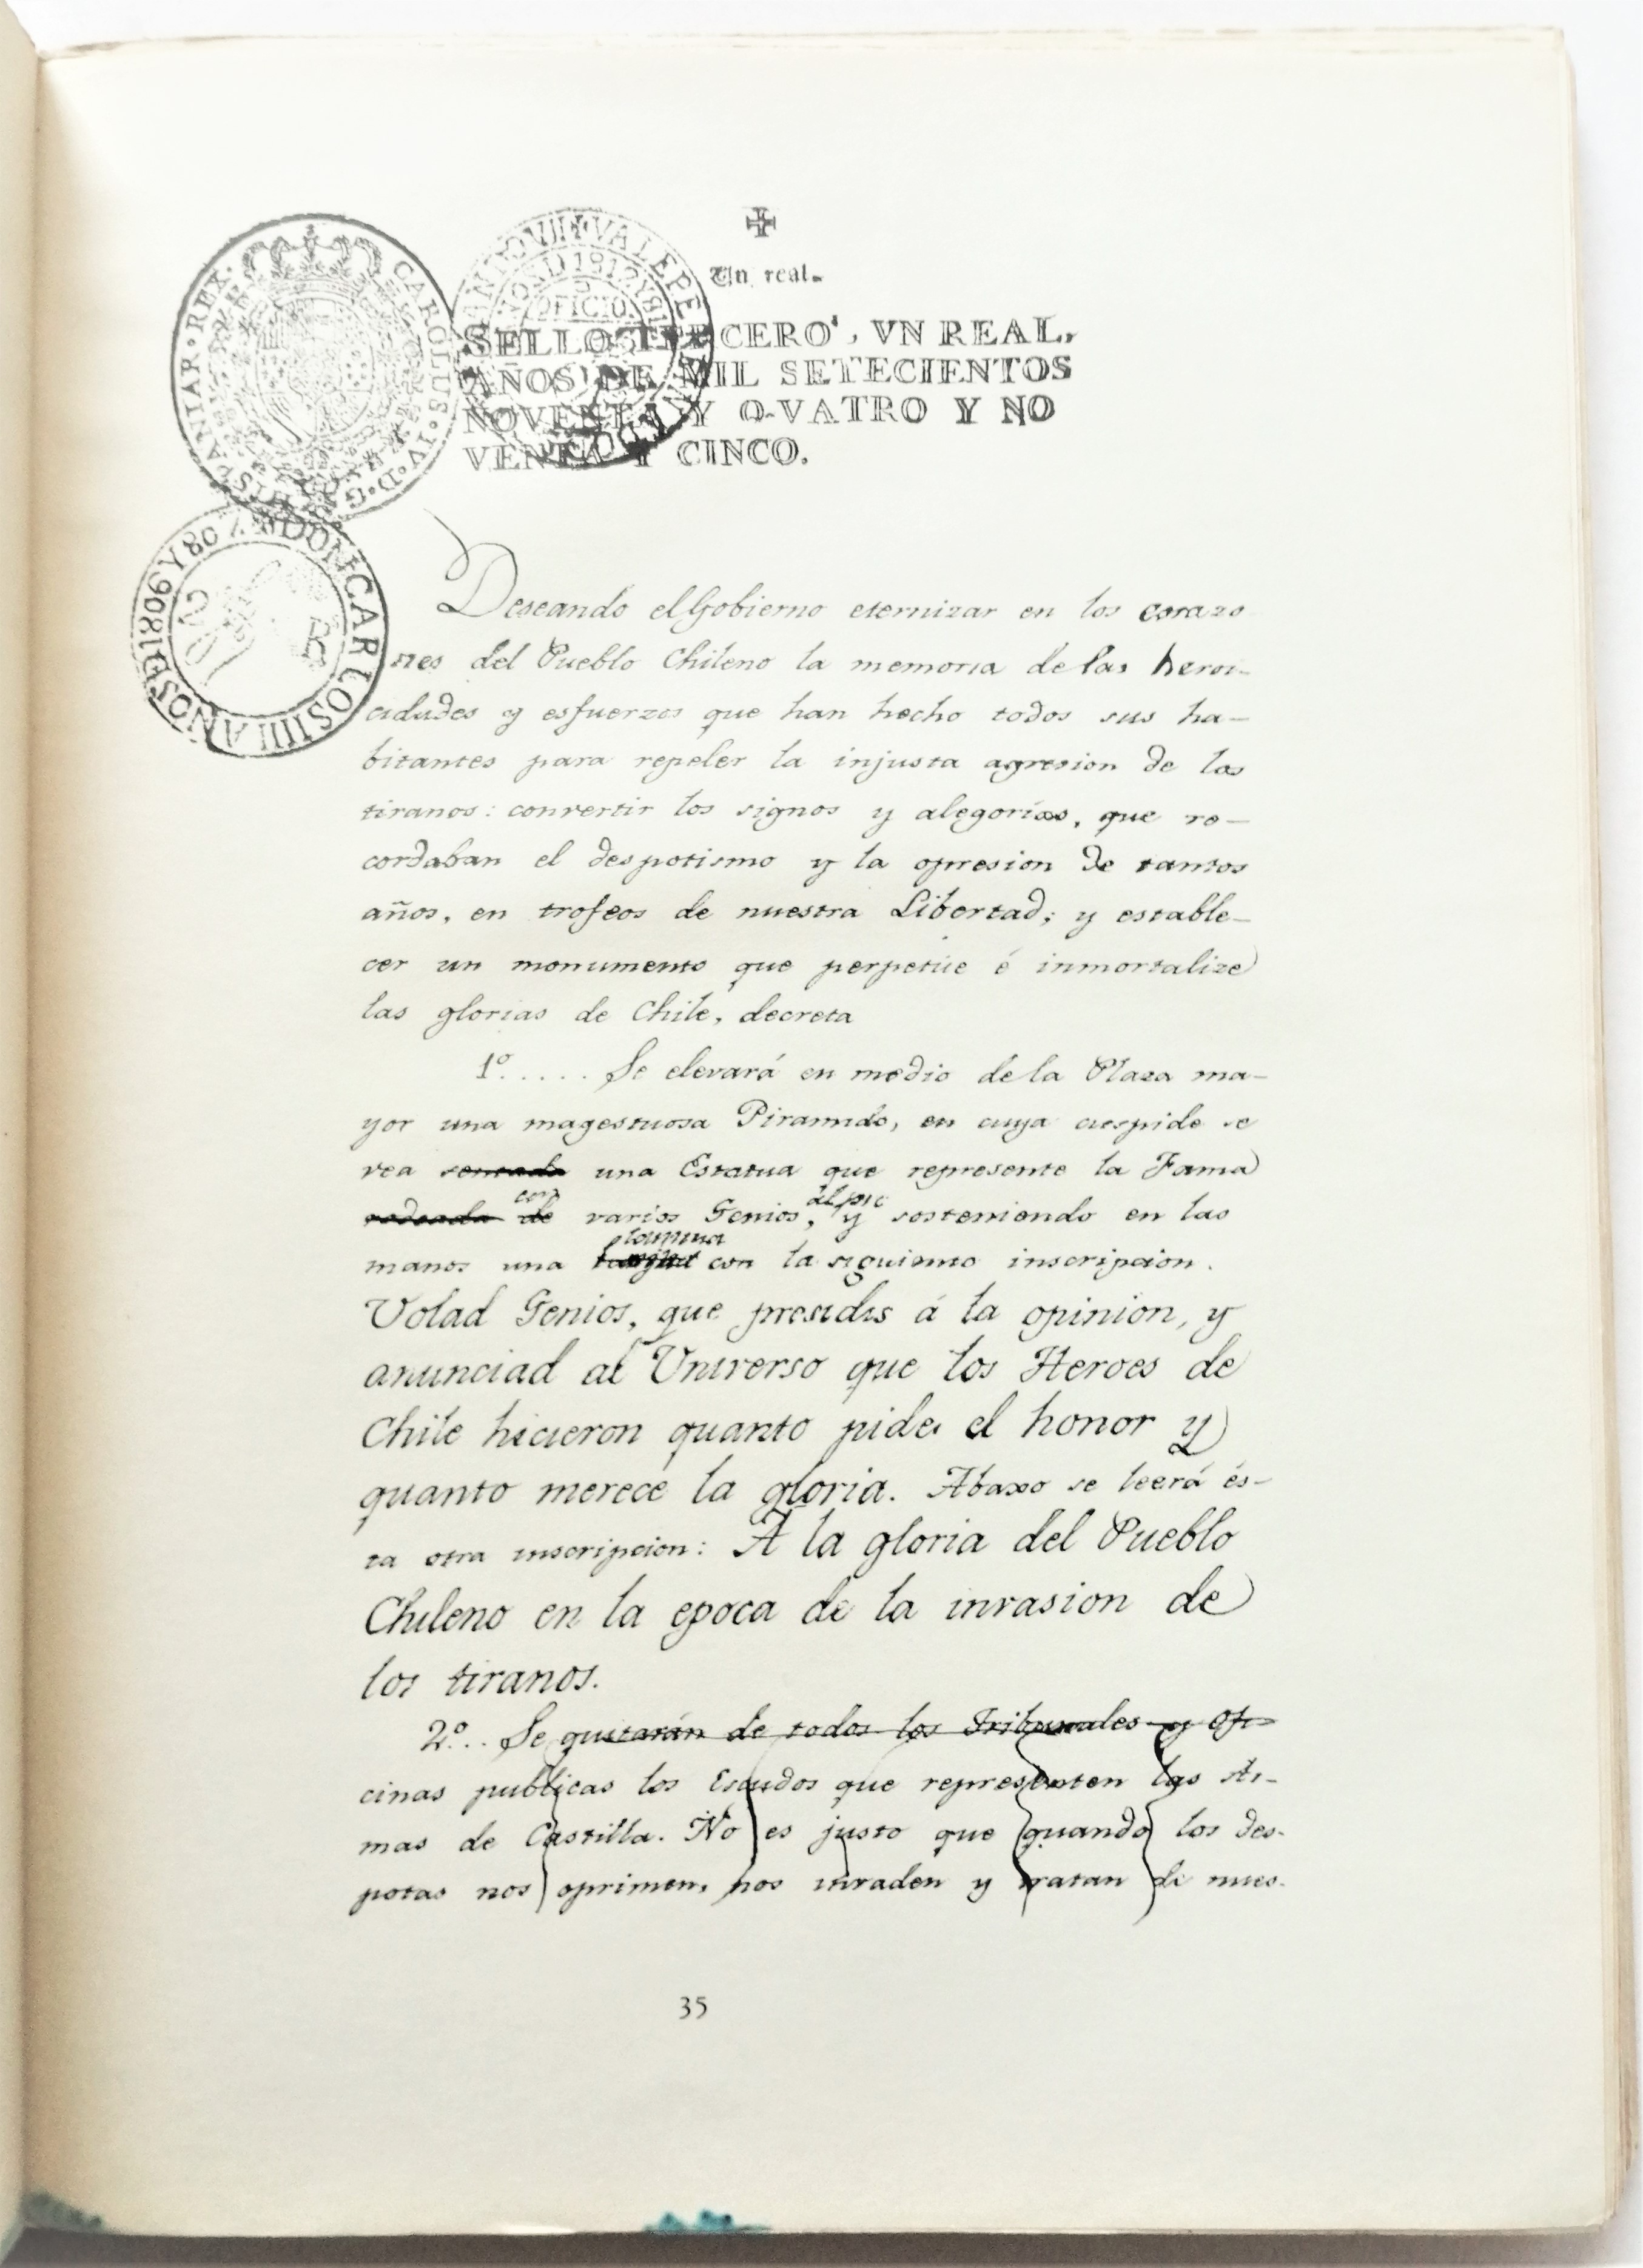 CAROLUS·IV·D·G·HISPANIAR·REX·
Un real.
SELLO TERCERO, VN REAL,
AÑOS DE MIL SETECIENTOS
NOVENTA Y QVATRO Y NO
VENTA Y CINCO.
DON CARLOS IIII AÑOS D 1806 Y 807
2 R
Deseando el Gobierno eternizar en los corazo
nes del Pueblo Chileno la memoria de las heroi-
cidades y esfuerzos que han hecho todos sus ha-
bitantes para repeler la injusta agresion de los
tiranos: convertir los signos y alegorías, que re-
cordaban el despotismo y la opresion de tantos
años, en trofeos de nuestra Libertad; y estable-
cer un monumento que perpetúe é inmortalize
las glorias de Chile, decreta
1º..... Se elevará en medio de la Plaza ma-
yor una magestuosa Piramide, en cuya cuspide se
vea sentada una Estatua que represente la Fama
con al pie
rodeada de varios Genios, y sosteniendo en las
lamina
manos una tarjeta con la siguiente inscripcion.
Volad Genios, que presidis á la opinion, y
anunciad al Universo que los Heroes de
Chile hicieron quanto pide el honor y
quanto merece la gloria. Abaxo se leerá és-
ta otra inscripcion: A la gloria del Pueblo
Chileno en la epoca de la invasion de
los tiranos.
2º.. Se quitarán de todos los Tribunales y Ofi-
cinas publicas los Escudos que representen las Ar-
mas de Castilla. No es justo que quando los des-
potas nos oprimen, nos invaden y tratan de nues-
35